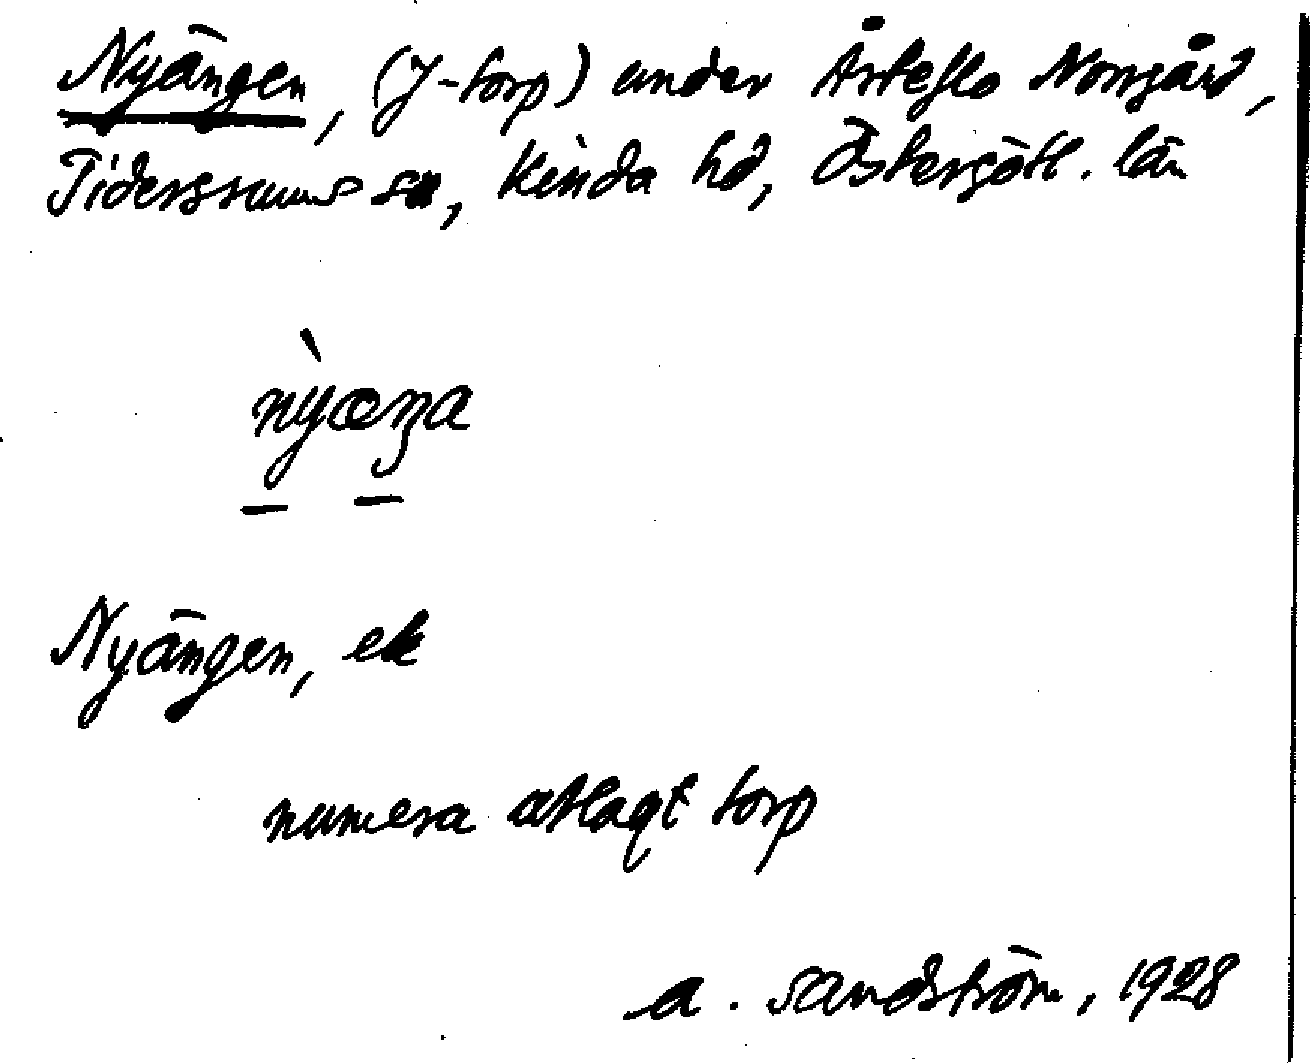 Nyängen, (f-torp) under Årteflo Norrgård,
Tidersrums sn, Kinda hd, Östergötl. län
nỳæŋa
Nyängen, ek
numera avlagt torp
A. Sandström, 1928